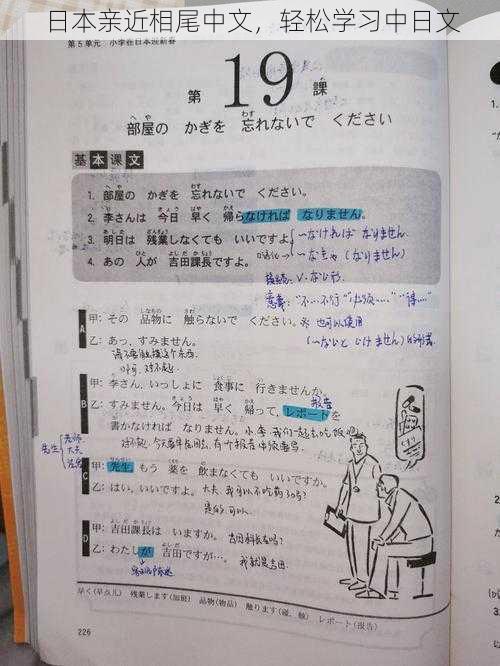 日本亲近相尾中文，轻松学习中日文
第5单元 小李在日本迎新春
第19課
部屋の かぎを 忘れないで ください
基本课文
1. 部屋の かぎを 忘れないで ください。
2. 李さんは 今日 早く 帰らなければ なりません。
3. 明日は 残業しなくても いいですよ。
4. あの 人が 吉田課長ですよ。
〜なければ なりません
A
甲: その 品物に 触らないで ください。
乙: あっ、すみません。
请不要触摸这个东西。
对不起
B
甲: 李さん、いっしょに 食事に 行きませんか。
乙: すみません。今日は 早く 帰って、レポートを
报告
書かなければ なりません。
C
甲: 先生、もう 薬を 飲まなくても いいですか。
乙: はい、いいですよ。
先生
老师
大夫
大夫，我可以不吃药了吗?
是的，可以。
D
甲: 吉田課長は いますか。
乙: わたしが 吉田ですが…。
我就是吉田
早く(早点儿) 残業します(加班) 品物(物品) 触ります(碰，触) レポート(报告)
226